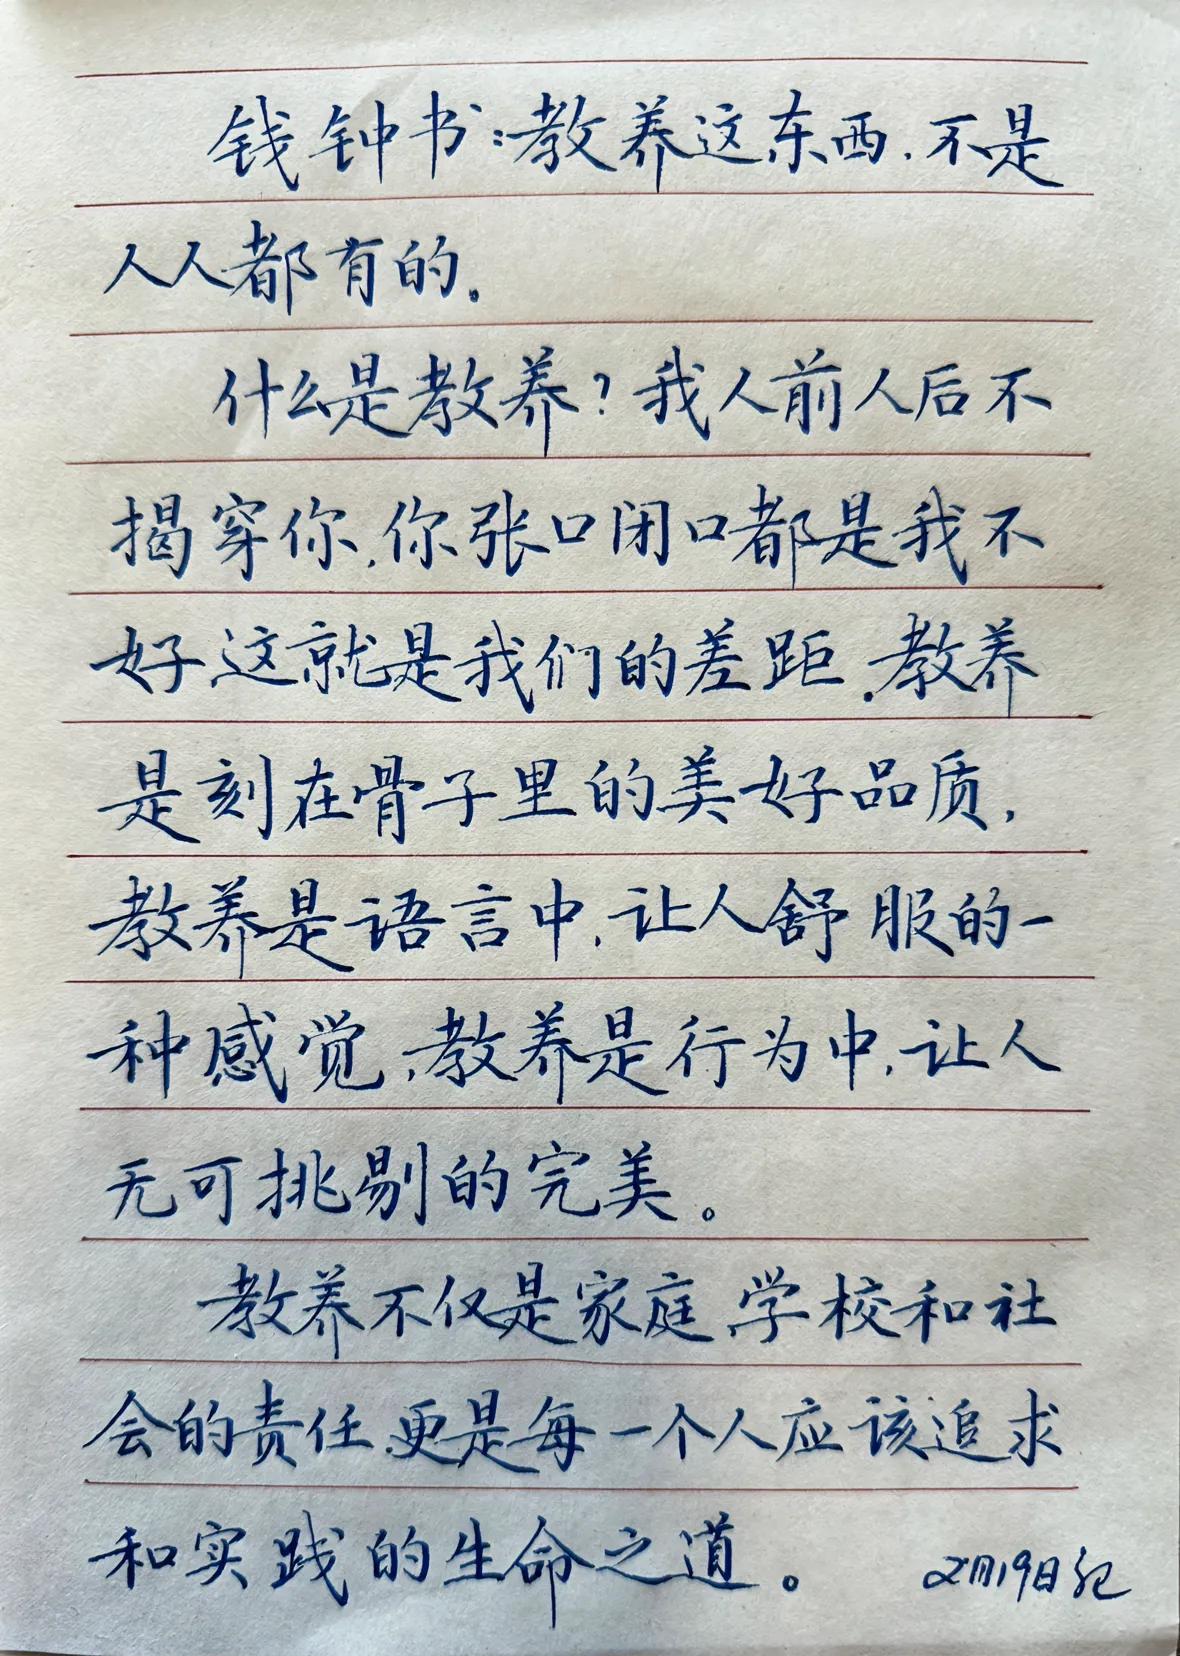 钱钟书:教养这东西,不是
人人都有的。
什么是教养?我人前人后不
揭穿你,你张口闭口都是我不
好,这就是我们的差距。教养
是刻在骨子里的美好品质,
教养是语言中,让人舒服的一
种感觉,教养是行为中,让人
无可挑剔的完美。
教养不仅是家庭,学校和社
会的责任,更是每一个人应该追求
和实践的生命之道。 2月19日记